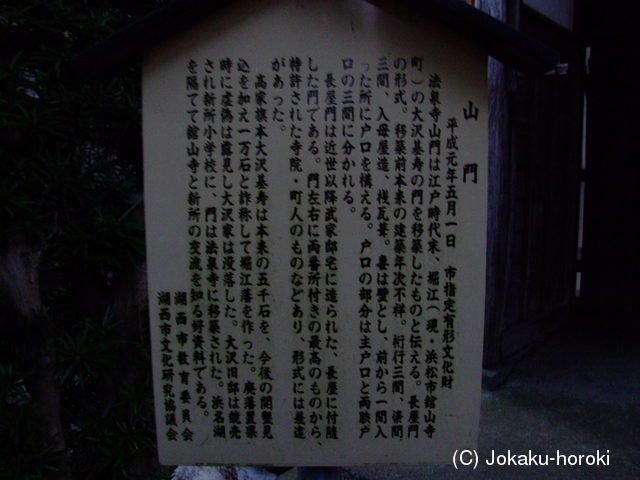 山門
平成元年五月一日 市指定有形文化財
法泉寺山門は江戸時代末、堀江(現・浜松市舘山寺
町)の大沢基寿の門を移築したものと伝える。長屋門
の形式。移築前本来の建築年次不祥。桁行三間、梁間
三間、入母屋造、桟瓦葺。妻は壁とし、前から一間入
った所に戸口を構える。戸口の部分は主戸口と両脥戸
口の三間に分かれる。
長屋門は近世以降武家邸宅に造られた、長屋に付随
した門である。門左右に両番所付きの最高のものから、
特許された寺院・町人のものなどあり、形式には差違
があった。
高家旗本大沢基寿は本来の五千石を、今後の開墾見
込を加え一万石と詐称して堀江藩を作った。廃藩置県
時に虚偽は露見し大沢家は没落した。大沢旧邸は競売
され新所小学校に、門は法泉寺に移築された。浜名湖
を隔てて舘山寺と新所の交流を知る好資料である。
湖西市教育委員会
湖西市文化研究協議会
(C) Jokaku-horoki